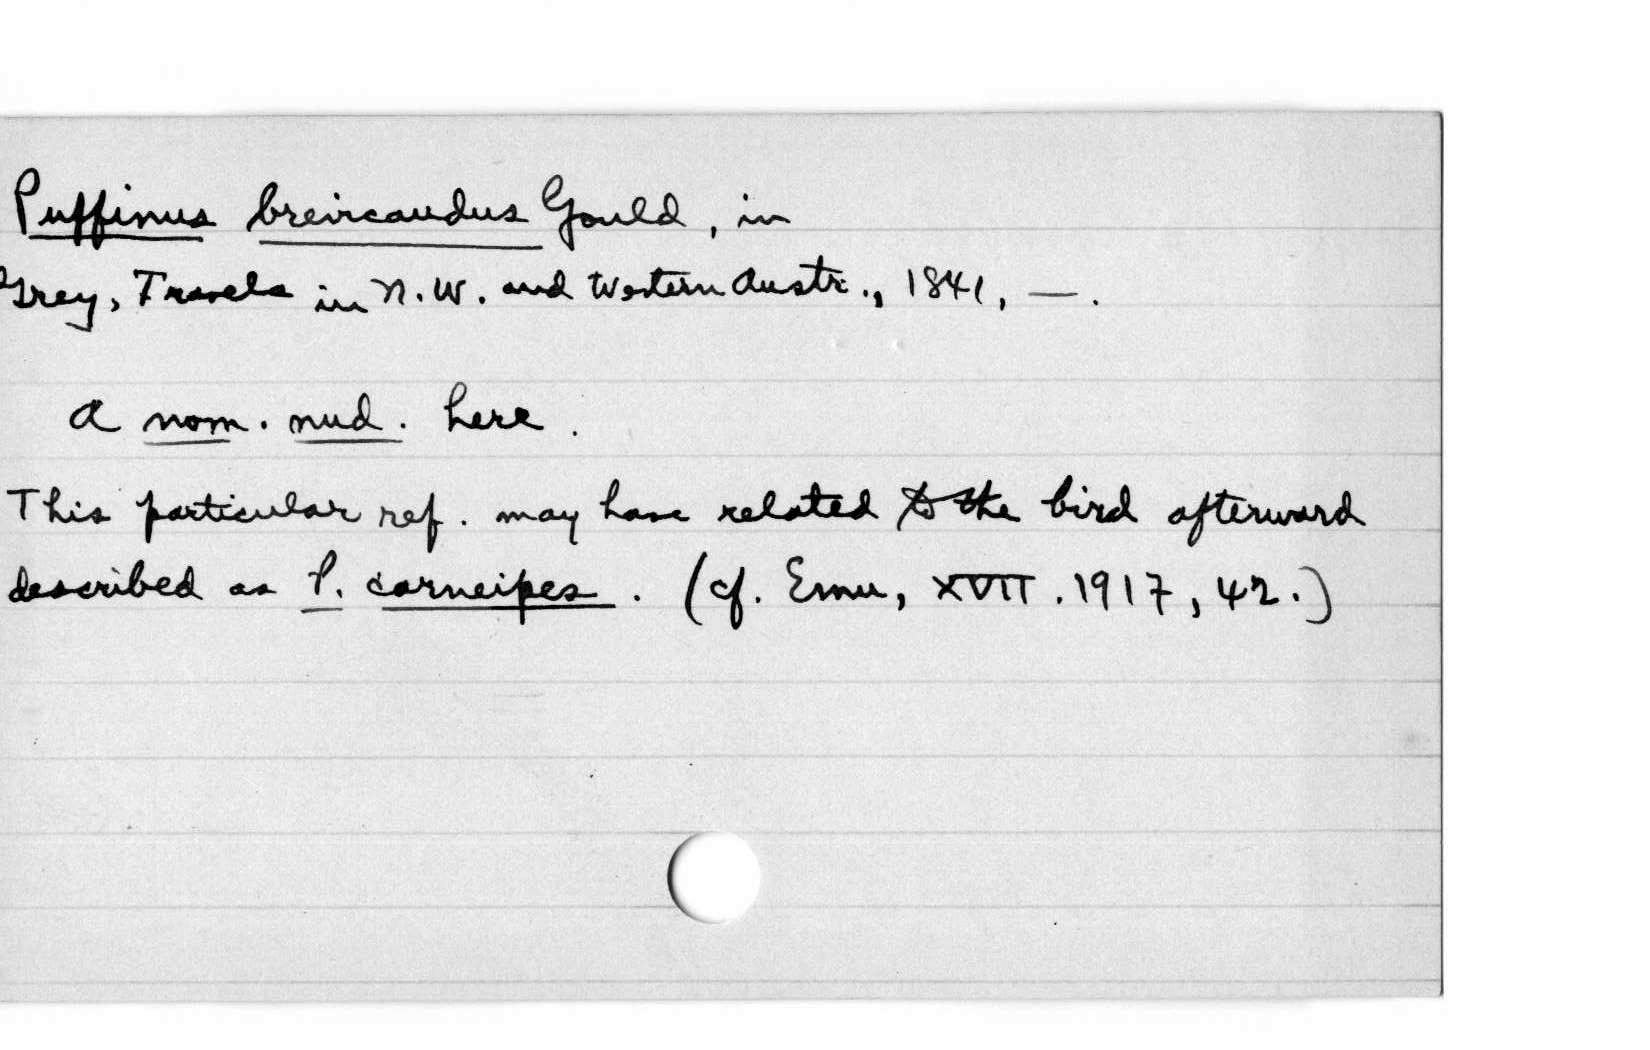 Puffinus brevicaudus Gould, in
Grey, Travels in N.W. and Western Austr., 1841, —.
A nom. nud. here.
This particular ref. may have related to the bird afterward
described as P. carneipes. (cf. Emu, XVII. 1917, 42.)